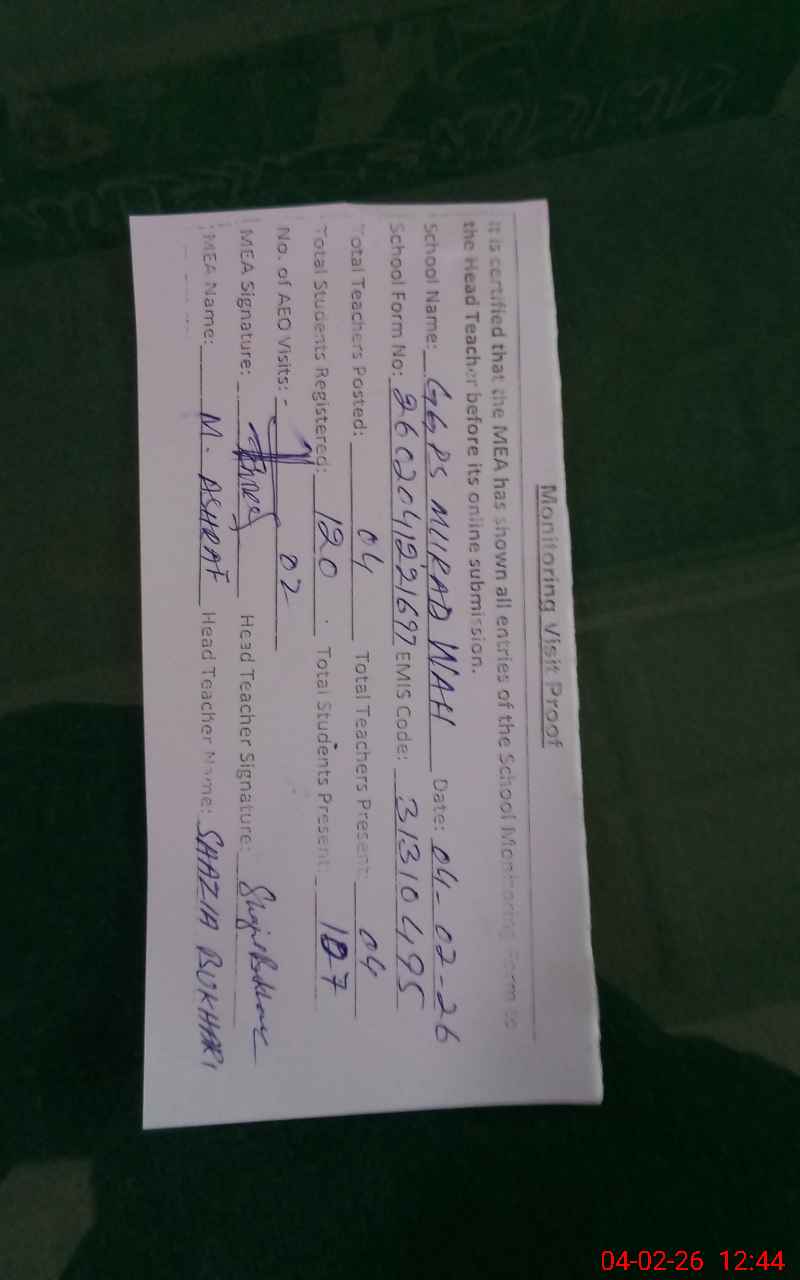 Monitoring Visit Proof
It is certified that the MEA has shown all entries of the School Monitoring Form to
the Head Teacher before its online submission.
School Name: GGPS MURAD WAH Date: 04-02-26
School Form No: 2602041221697 EMIS Code: 31310495
Total Teachers Posted: 04 Total Teachers Present: 04
Total Students Registered: 120 Total Students Present: 107
No. of AEO Visits: - 02
MEA Signature: Head Teacher Signature:
MEA Name: M. ASHRAF Head Teacher Name: SHAZIA BUKHARI
04-02-26 12:44